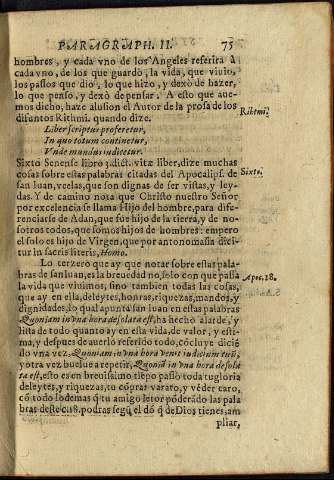 PARAGRAPH. II. 75
hombres, y cada vno de los Angeles referirà à
cada vno, de los que guardò, la vida, que viuio,
los passos que dio, lo que hizo, y dexò de hazer,
lo que penso, y dexò de pensar. A esto que aue-
mos dicho, haze alusion el Autor de la prosa de los
difuntos Rithmi. quando dize. Rithmi.
Liber scriptus proferetur,
In quo totum continetur,
Vnde mundus iudicetur.
Sixto Senense libro 3. dict. vitæ liber, dize muchas
cosas sobre estas palabras citadas del Apocalips. de Sixto.
san Iuan, veelas, que son dignas de ser vistas, y ley-
das. Y de camino nota que Christo nuestro Señor
por excelencia se llama Hijo del hombre, para dife-
renciarse de Adan, que fue hijo de la tierra, y de no-
sotros todos, que somos hijos de hombres: empero
el solo es hijo de Virgen, que por antonomasia dici-
tur in sacris literis, Homo.
Lo tercero que ay que notar sobre estas pala-
bras de san Iuan, es la breuedad no solo con que passa Apoc. 18.
la vida que viuimos, sino tambien todas las cosas,
que ay en ella, deleytes, honras, riquezas, mandos, y
dignidades, lo qual apunta san Iuan en estas palabras
Quoniam in vna hora desolata est, ha hecho alarde, y
lista de todo quanto ay en esta vida, de valor, y esti-
ma, y despues de auerlo referido todo, cõcluye dicié
do vna vez. Quoniam in vna hora venit iudicium tuũ,
y otra vez buelue a repetir, Quoniã in vna hora desola
ta est, esto es en breuissimo tiẽpo passò toda tu gloria
deleytes, y riquezas, tu cõprar y
caro, y vẽder caro,
cõ todo lo demas q̃ tu amigo letor põderádo las pala
bras deste c. 18. podras segũ el dõ q̃ de Dios tienes, am
pliar,